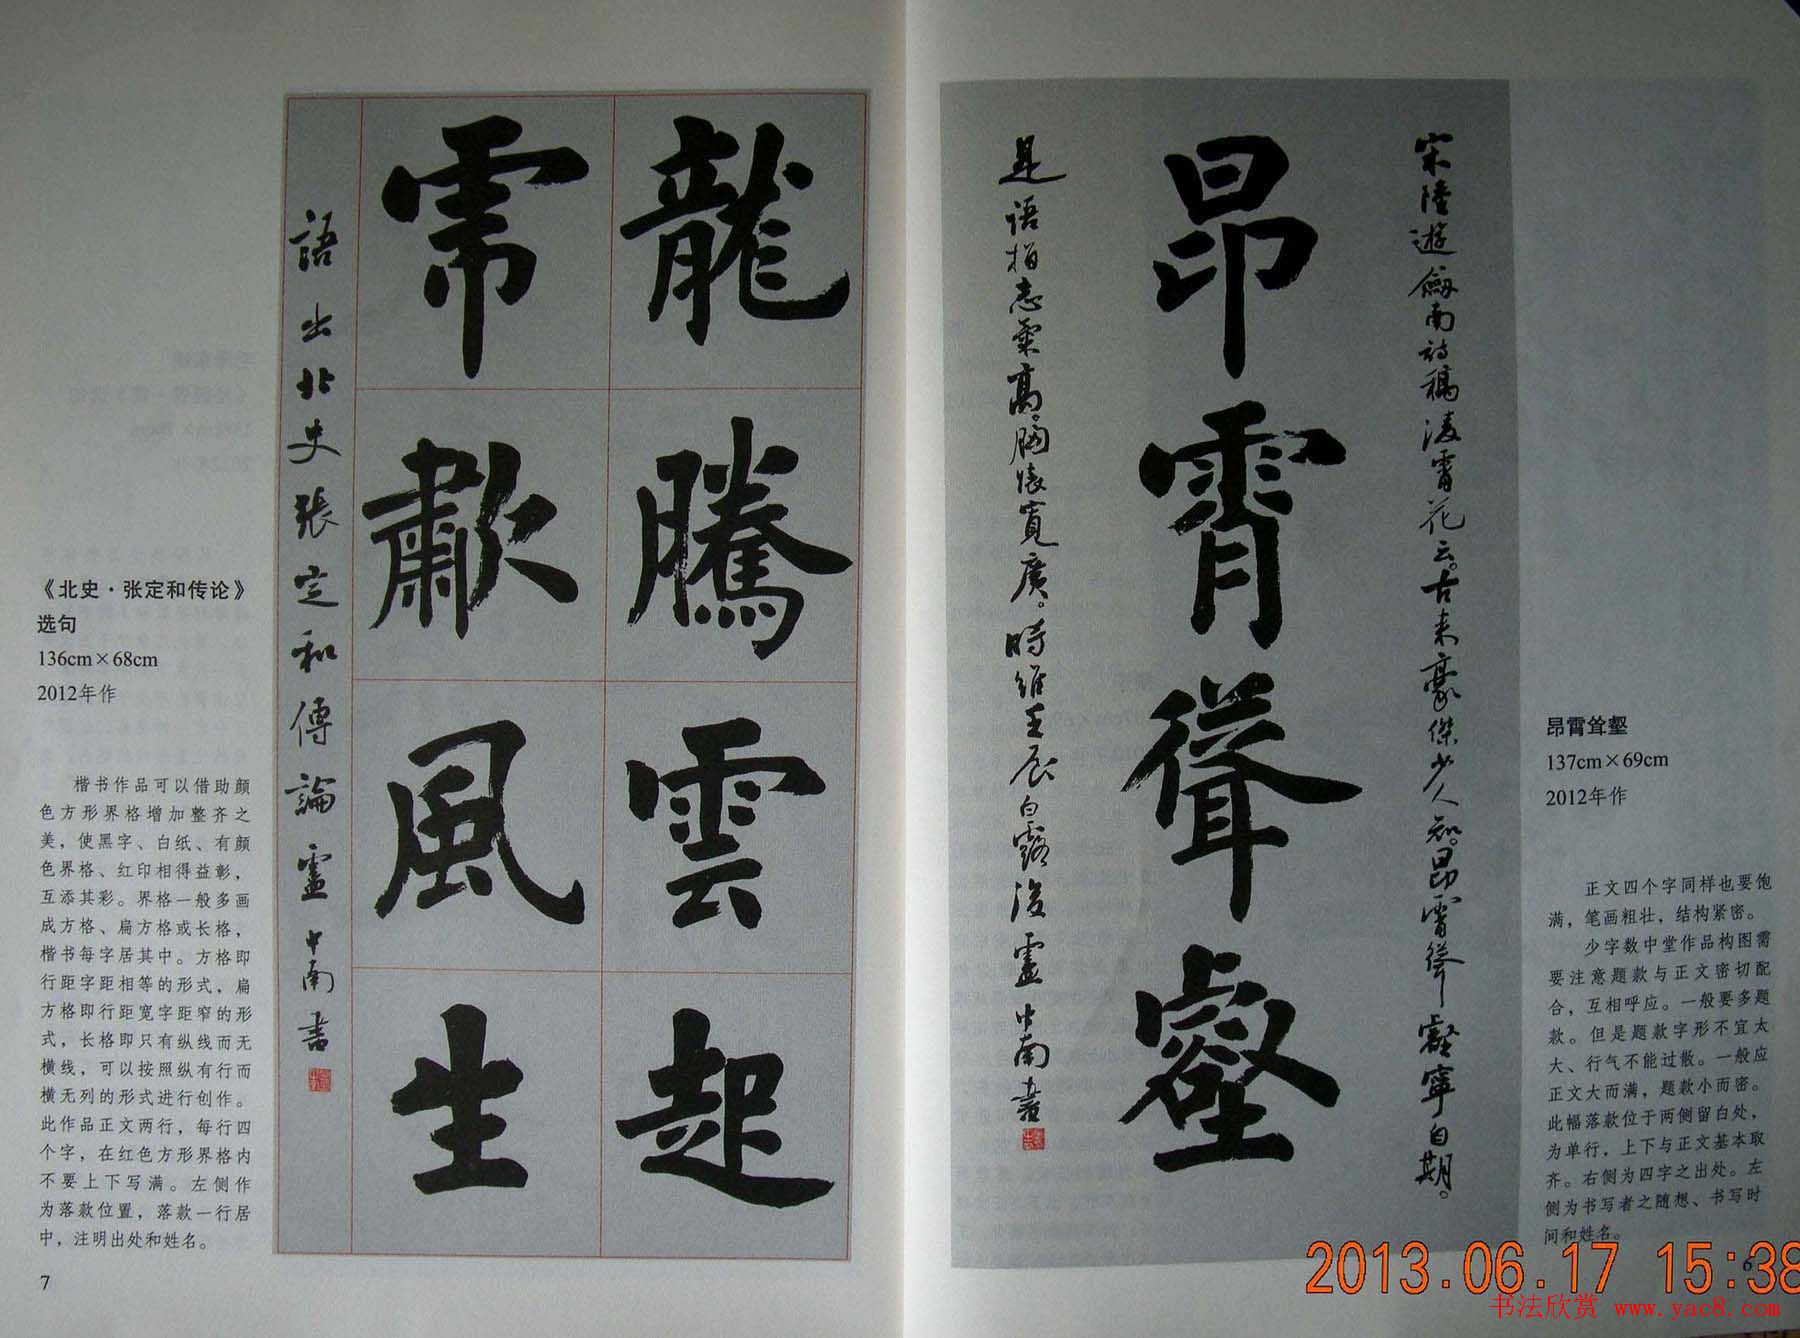 宋陸遊劍南詩稿凌霄花云。古來豪傑少人知。昂霄聳壑寧自期。
昂霄聳壑
是語指志氣高。胸懷寬廣。時維壬辰白露後盧中南書
昂霄耸壑
137cm×69cm
2012年作
正文四个字同样也要饱
满，笔画粗壮，结构紧密。
少字数中堂作品构图需
要注意题款与正文密切配
合，互相呼应。一般要多题
款。但是题款字形不宜太
大、行气不能过散。一般应
正文大而满，题款小而密。
此幅落款位于两侧留白处，
为单行，上下与正文基本取
齐。右侧为四字之出处。左
侧为书写者之随想、书写时
间和姓名。
6
龍騰雲起
虎歗風生
語出北史張定和傳論盧中南書
《北史·张定和传论》
选句
136cm×68cm
2012年作
楷书作品可以借助颜
色方形界格增加整齐之
美，使黑字、白纸、有颜
色界格、红印相得益彰，
互添其彩。界格一般多画
成方格、扁方格或长格，
楷书每字居其中。方格即
行距字距相等的形式，扁
方格即行距宽字距窄的形
式，长格即只有纵线而无
横线，可以按照纵有行而
横无列的形式进行创作。
此作品正文两行，每行四
个字，在红色方形界格内
不要上下写满。左侧作
为落款位置，落款一行居
中，注明出处和姓名。
7
2013.06.17 15:38
书法欣赏 www.yac8.com